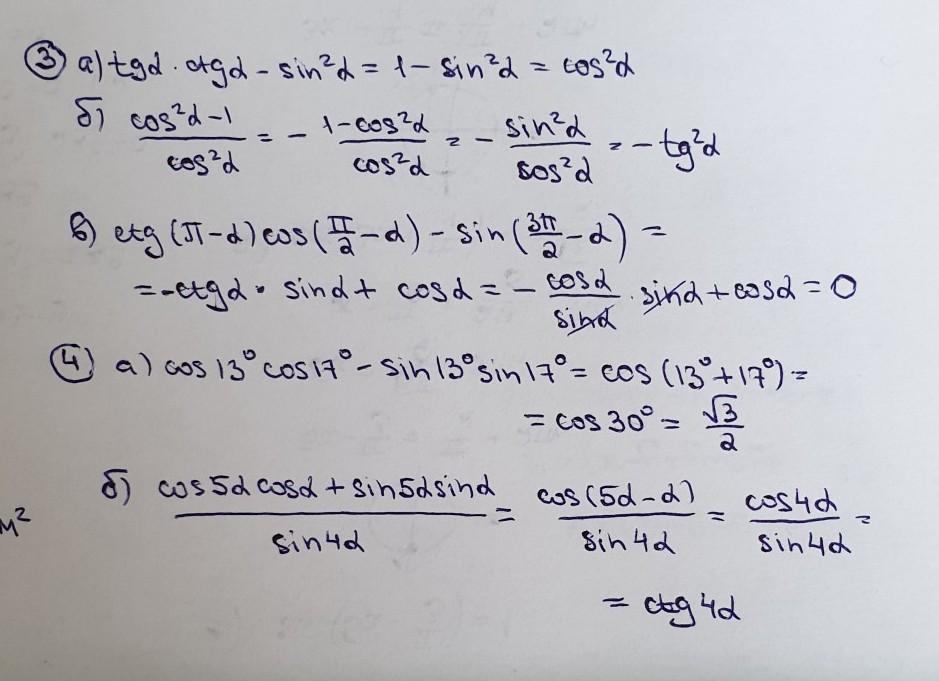 ③ а) tgα · ctgα - sin²α = 1 - sin²α = cos²α
б) (cos²α-1)/(cos²α) = - (1-cos²α)/(cos²α) = - (sin²α)/(cos²α) = - tg²α
в) ctg(π-α)cos(π/2-α) - sin(3π/2-α) =
= -ctgα · sinα + cosα = - (cosα)/(sinα) · sinα + cosα = 0
④ а) cos13°cos17° - sin13°sin17° = cos(13°+17°) =
= cos30° = √3/2
б) (cos5αcosα + sin5αsinα)/(sin4α) = (cos(5α-α))/(sin4α) = (cos4α)/(sin4α) =
м²
= ctg4α